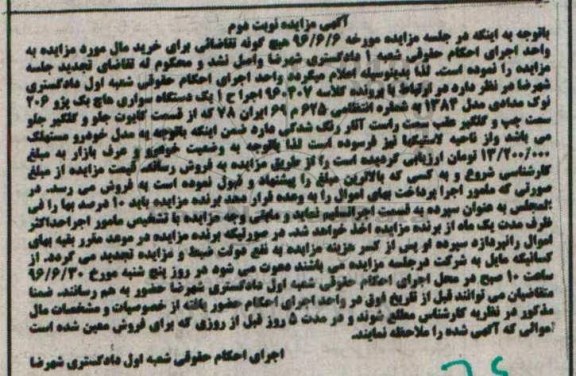 آگهی مزایده نوبت دوم
باتوجه به اینکه در جلسه مزایده مورخه ۹۶/۶/۶ هیچ گونه تقاضائی برای خرید مال مورد مزایده به
واحد اجرای احکام حقوقی شعبه ۱ دادگستری شهرضا واصل نشد و محکوم له تقاضای تجدید جلسه
مزایده را نموده است. لذا بدینوسیله اعلام میگردد واحد اجرای احکام حقوقی شعبه اول دادگستری
شهرضا در نظر دارد در ارتباط با پرونده کلاسه ۹۶۰۲۰۷ اجرا ح ۱ یک دستگاه سواری هاچ بک پژو ۲۰۶
نوک مدادی مدل ۱۳۸۴ به شماره انتظامی ۶۲۵ م ۶۹ ایران ۷۸ که از قسمت کاپوت جلو و گلگیر جلو
سمت چپ و گلگیر عقب سمت راست آثار رنگ شدگی دارد ضمن اینکه باتوجه به مدل خودرو مستهلک
می باشد واز ناحیه لاستیکها نیز فرسوده است لذا باتوجه به وضعیت خودرو از عرف بازار به مبلغ
۱۳/۲۰۰/۰۰۰ تومان ارزیابی گردیده است را از طریق مزایده به فروش رساند. قیمت مزایده از مبلغ
کارشناسی شروع و به کسی که بالاترین مبلغ را پیشنهاد و قبول نموده است به فروش می رسد. در
صورتی که مامور اجرا پرداخت بهای اموال را به وعده قرار دهد برنده مزایده باید ۱۰ درصد بها را فی
المجلس به عنوان سپرده به قسمت اجراتسلیم نماید و مابقی وجه مزایده با تشخیص مامور اجراحداکثر
ظرف مدت یک ماه از برنده مزایده اخذ خواهد شد. در صورتیکه برنده مزایده در موعد مقرر بقیه بهای
اموال رانپردازد سپرده او پس از کسر هزینه مزایده به نفع دولت ضبط و مزایده تجدید می گردد. از
کسانیکه مایل به شرکت درجلسه مزایده می باشند دعوت می شود در روز پنج شنبه مورخ ۹۶/۶/۳۰
ساعت ۱۰ صبح در محل اجرای احکام حقوقی شعبه اول دادگستری شهرضا حضور به هم رسانند. ضمنا
متقاضیان می توانند قبل از تاریخ فوق در واحد اجرای احکام حضور یافته از خصوصیات و مشخصات مال
مذکور در نظریه کارشناسی مطلع شوند و در مدت ۵ روز قبل از روزی که برای فروش معین شده است
اموالی که آگهی شده را ملاحظه نمایند.
اجرای احکام حقوقی شعبه اول دادگستری شهرضا